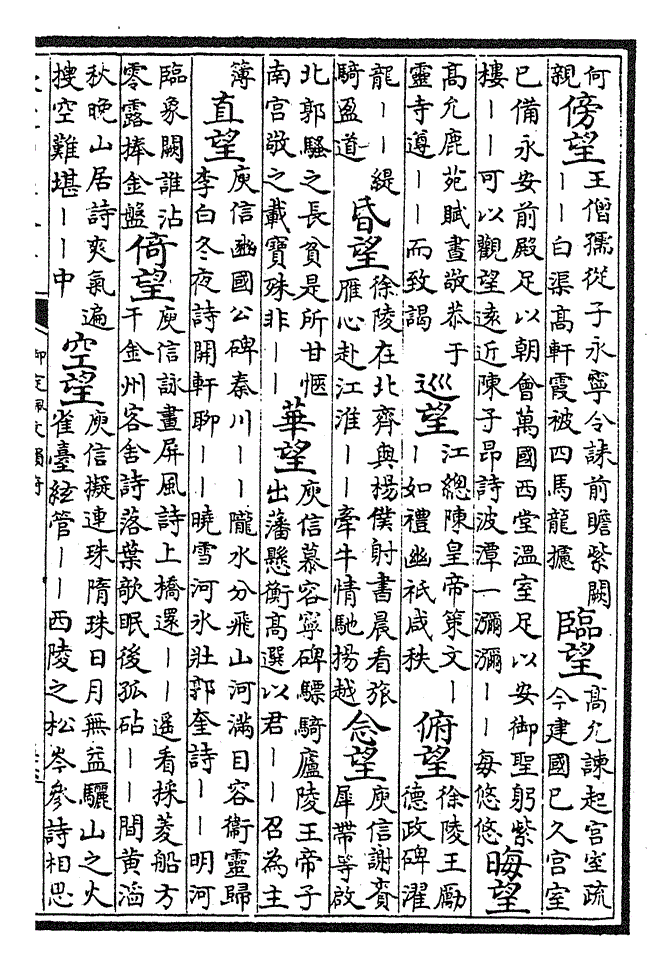 何
親
傍望
王僧孺從子永寧令誄前瞻紫闕
——白渠高軒霞被四馬龍攄
臨望
高允諫起宮室疏
今建國已久宮室
已備永安前殿足以朝會萬國西堂溫室足以安御聖躬紫
樓——可以觀望遠近陳子昂詩波潭一瀰瀰——每悠悠
晦望
高允鹿苑賦晝敬恭于
靈寺遵——而致謁
巡望
江總陳皇帝策文—
—如禮幽祇咸秩
俯望
徐陵王勵
德政碑濯
龍——緹
騎盈道
昏望
徐陵在北齊與揚僕射書晨看旅
雁心赴江淮——牽牛情馳揚越
念望
庾信謝賚
犀帶等啟
北郭騷之長貧是所甘愜
南宮敬之載寶殊非——
華望
庾信慕容寧碑驃騎廬陵王帝子
出藩懸衡高選以君——召為主
簿
直望
庾信豳國公碑秦川——隴水分飛山河滿目容衛靈歸
李白冬夜詩開軒聊——曉雪河冰壯郭奎詩——明河
臨象闕誰沾
零露捧金盤
倚望
庾信詠畫屏風詩上橋還——遙看採菱船方
干金州客舍詩落葉歌眠後孤砧——間黃滔
秋晚山居詩爽氣遍
搜空難堪——中
空望
庾信擬連珠隋珠日月無益驪山之火
雀臺絃管——西陵之松岑參詩相思